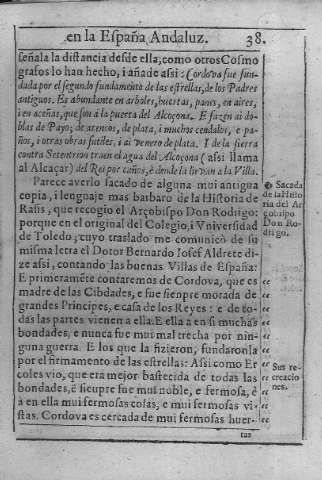 en la España Andaluz. 38.
señala la distancia desde ella, como otros Cosmo
grafos lo han hecho, i añade assi: Cordova fue fun-
dada por el segundo fundamento de las estrellas, de los Padres
antiguos. Es abundante en arboles, huertas, panes, en aires,
i en aceñas, que son a la puerta del Alcoçona. E fazen ai do-
blas de Payo; de arenios, de plata, i muchos cendales, e pa-
ños, i otras obras sutiles, i ai venero de plata. I de la sierra
contra Setentrion traen el agua del Alcoçona (assi llama
al Alcaçar) del Rei por caños, è donde la lievan a la Villa.
Parece averlo sacado de alguna mui antigua
copia, i lenguaje mas barbaro de la Historia de
Rasis, que recogio el Arçobispo Don Rodrigo:
porque en el original del Colegio, i Vniversidad
de Toledo; cuyo traslado me comunicò de su
misma letra el Dotor Bernardo Iosef Aldrete di-
ze assi, contando las buenas Villas de España:
E primeramẽte contaremos de Cordova, que es
madre de las Cibdades, e fue siempre morada de
grandes Principes, e casa de los Reyes: e de to-
das las partes vienen a ella. E ella a en si muchas
bondades, e nunca fue mui mal trecha por nin-
guna guerra. E los que la fizieron, fundaronla
por el firmamento de las estrellas: Assi como Er
coles vio, que era mejor bastecida de todas las
bondades, è siẽpre fue mui noble, e fermosa, è
a en ella mui fermosas cosas, e mui fermosas vi-
stas. Cordova es cercada de mui fermosas huer-
tas
Sacada
de la Histo
ria del Ar
çobispo
Don Ro-
drigo.
Sus re-
creacio
nes.